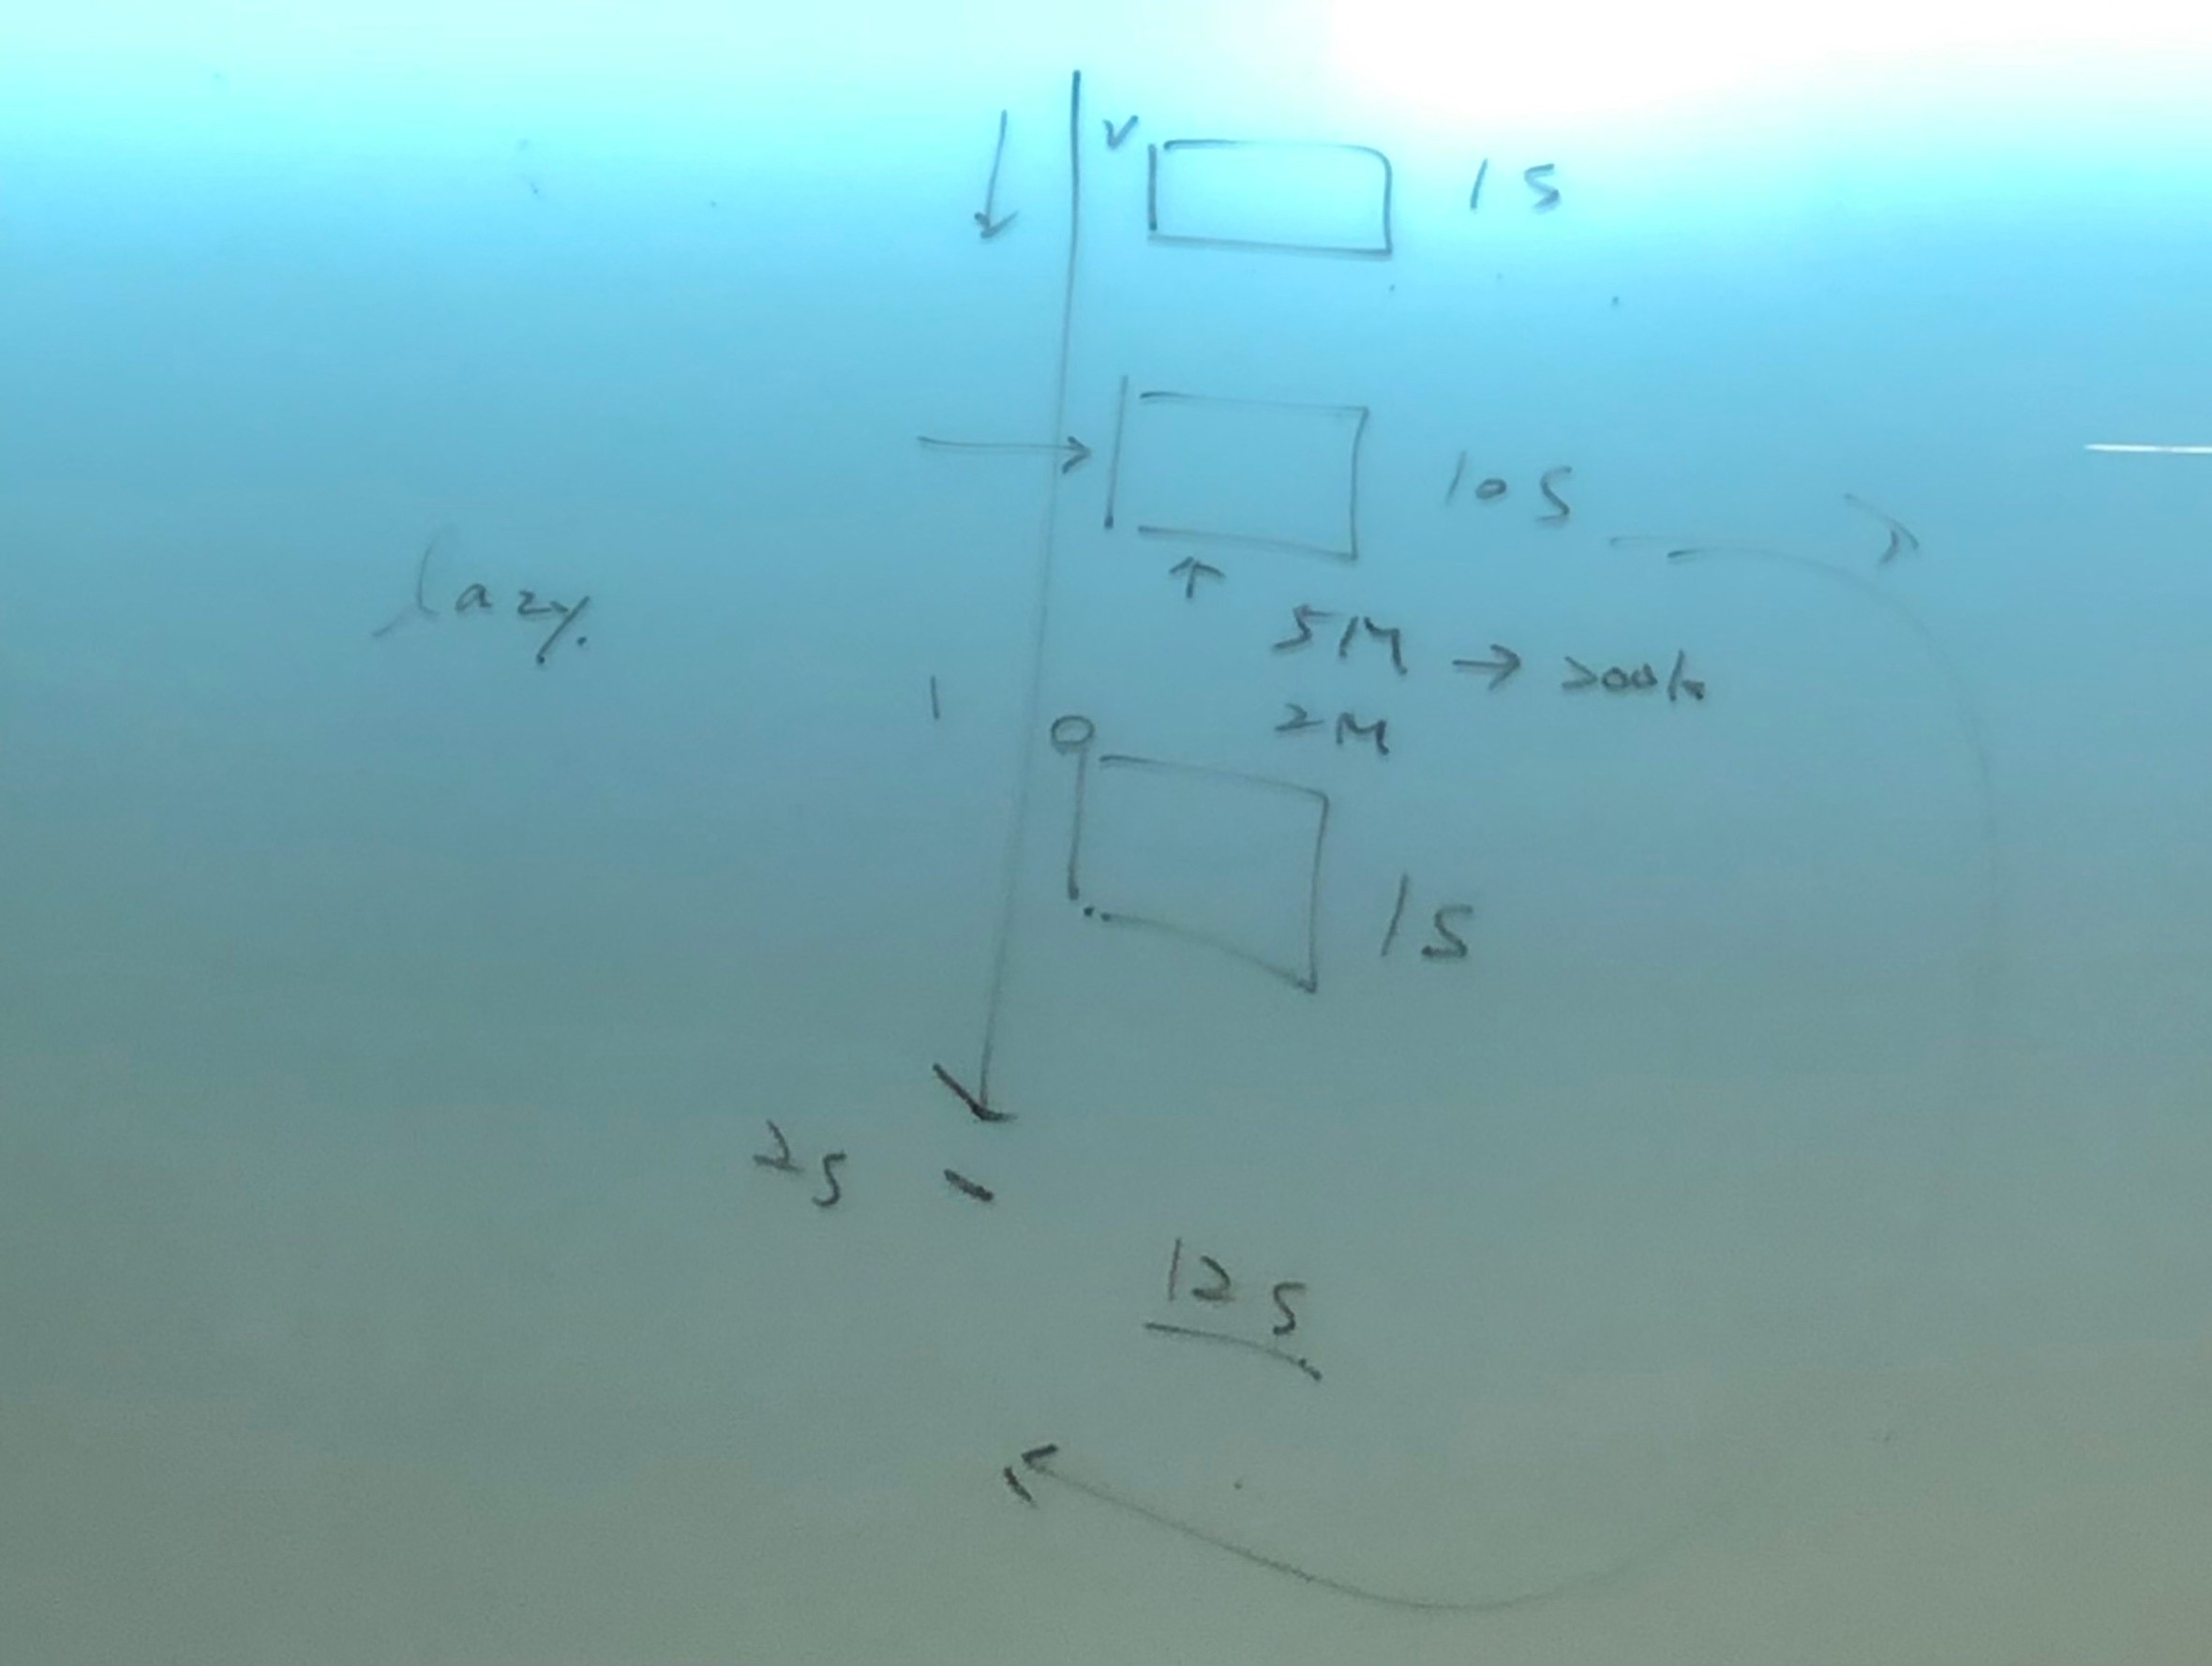 1S
10S
lazy
5M → 200k
1
2M
1S
2S
12S